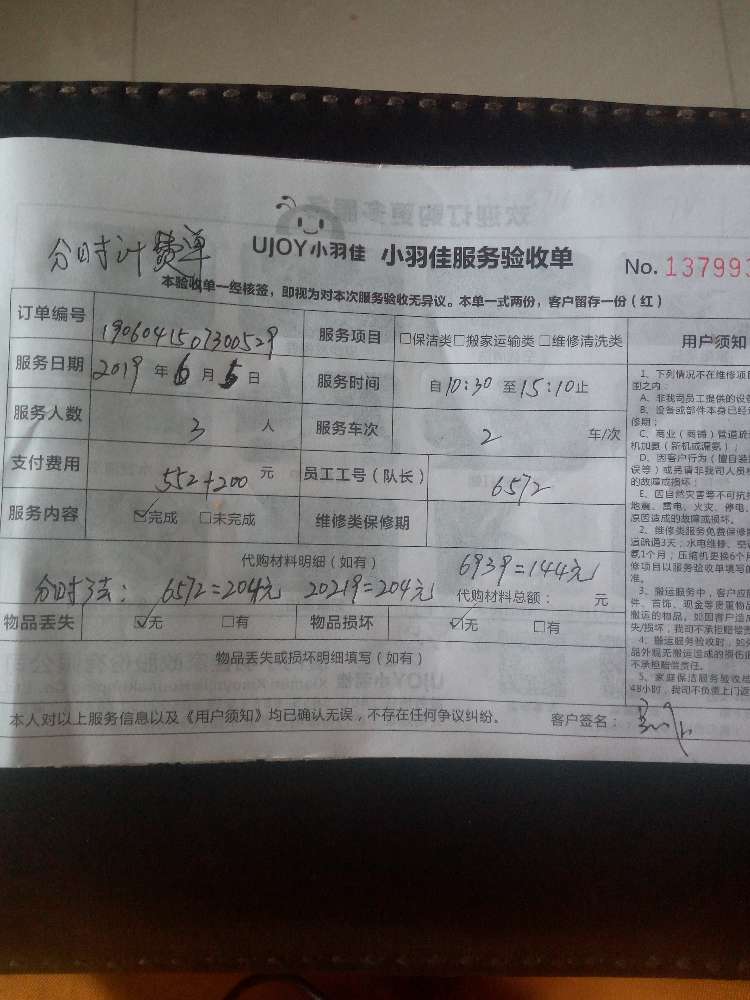 分时计费单
UJOY小羽佳 小羽佳服务验收单 No. 137993
本验收单一经核签，即视为对本次服务验收无异议。本单一式两份，客户留存一份（红）
订单编号 1906041507300529 服务项目 □保洁类□搬家运输类 □维修清洗类 用户须知
服务日期 2019 年 6 月 5 日 服务时间 自 10:30 至 15:10 止
服务人数 3 人 服务车次 2 车/次
支付费用 552+200 元 员工工号（队长） 6572
服务内容 ☑完成 □未完成 维修类保修期
代购材料明细（如有） 6939=144元
6572=204元 20219=204元 代购材料总额： 元
物品丢失 ☑无 □有 物品损坏 ☑无 □有
物品丢失或损坏明细填写（如有）
本人对以上服务信息以及《用户须知》均已确认无误，不存在任何争议纠纷。 客户签名：
1、下列情况不在维修项
围之内：
A、非我司员工提供的设
B、设备或部件本身已经
修期；
C、商业（商铺）管道疏
机加氨（新机或漏氨）
D、因客户行为（擅自装
误等）或另请非我司人员
的故障或损坏；
E、因自然灾害等不可抗
地震、雷电、火灾、停电、
原因造成的故障或损坏。
2、维修类服务免费保修
运疏通3天；水电维修、空
氨1个月；压缩机更换6个月
修项目以服务验收单填写
准。
3、搬运服务中，客户应
件、首饰、现金等贵重物
搬运的物品，如因客户造成
失/损坏，我司不承担赔偿
4、搬运服务验收时，如
品外观无搬运造成的损伤
不承担赔偿责任。
5、家庭保洁服务验收
48小时，我司不负责上门